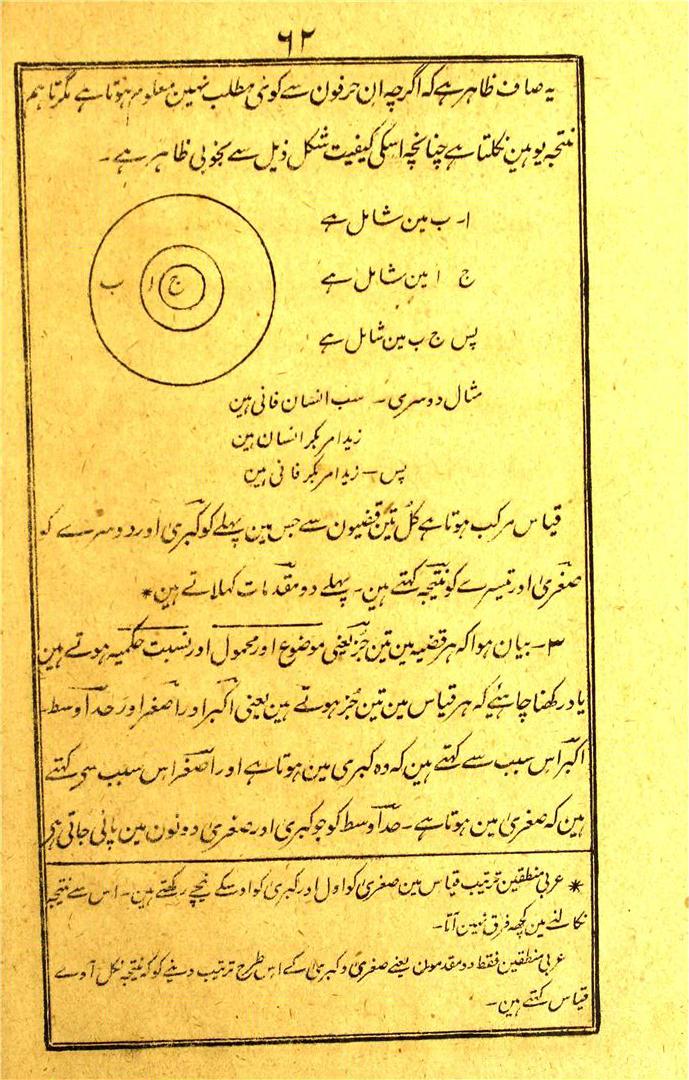 ۶۲
یہ صاف ظاہر ہے کہ اگرچہ ان حرفون سے کوئی مطلب نہین معلوم ہوتا ہے مگر تا ہم
نتجہ یوہین نکلتا ہے چنانچہ اسکی کیفیت شکل ذیل سے بخوبی ظاہر ہے۔
ا۔ ب مین شامل ہے
ج ا مین شامل ہے
پس ج ب مین شامل ہے
ب ا ج
مثال دوسری۔ سب انسان فانی ہین
زید امر بکر انسان ہین
پس۔ زید امر بکر فانی ہین
قیاس مرکب ہوتا ہے کل تین قضیون سے جس مین پہلے کو کبریٰ اور دوسرے کو
صغریٰ اور تیسرے کو نتیجہ کہتے ہین۔ پہلے دو مقدمات کہلاتے ہین*
۳۔ بیان ہوا کہ ہر قضیہ مین تین جز یعنی موضوع اور محمول اور نسبت حکمیہ ہوتے ہین
یاد رکھنا چاہئیے کہ ہر قیاس مین تین جُز ہوتے ہین یعنی اکبر اور اصغر اور حد اوسط۔
اکبر اس سبب سے کہتے ہین کہ وہ کبری مین ہوتا ہے اور اصغر اس سبب سی کہتے
ہین کہ صغریٰ مین ہوتا ہے۔ حد اوسط کو جو کبریٰ اور صغریٰ دونون مین پائی جاتی ہی
* عربی منطقین ترتیب قیاس مین صغریٰ کو اول اور کبریٰ کو اوسکے نیچے رکھتے ہین۔ اس سے نتیجہ
نکالنے مین کچھ فرق نہین آتا۔
عربی منطقین فقط دو مقدمون یعنے صغریٰ و کبریٰ کے اس طرح ترتیب دینے کو کہ نتیجہ نکل آوے
قیاس کہتے ہین۔